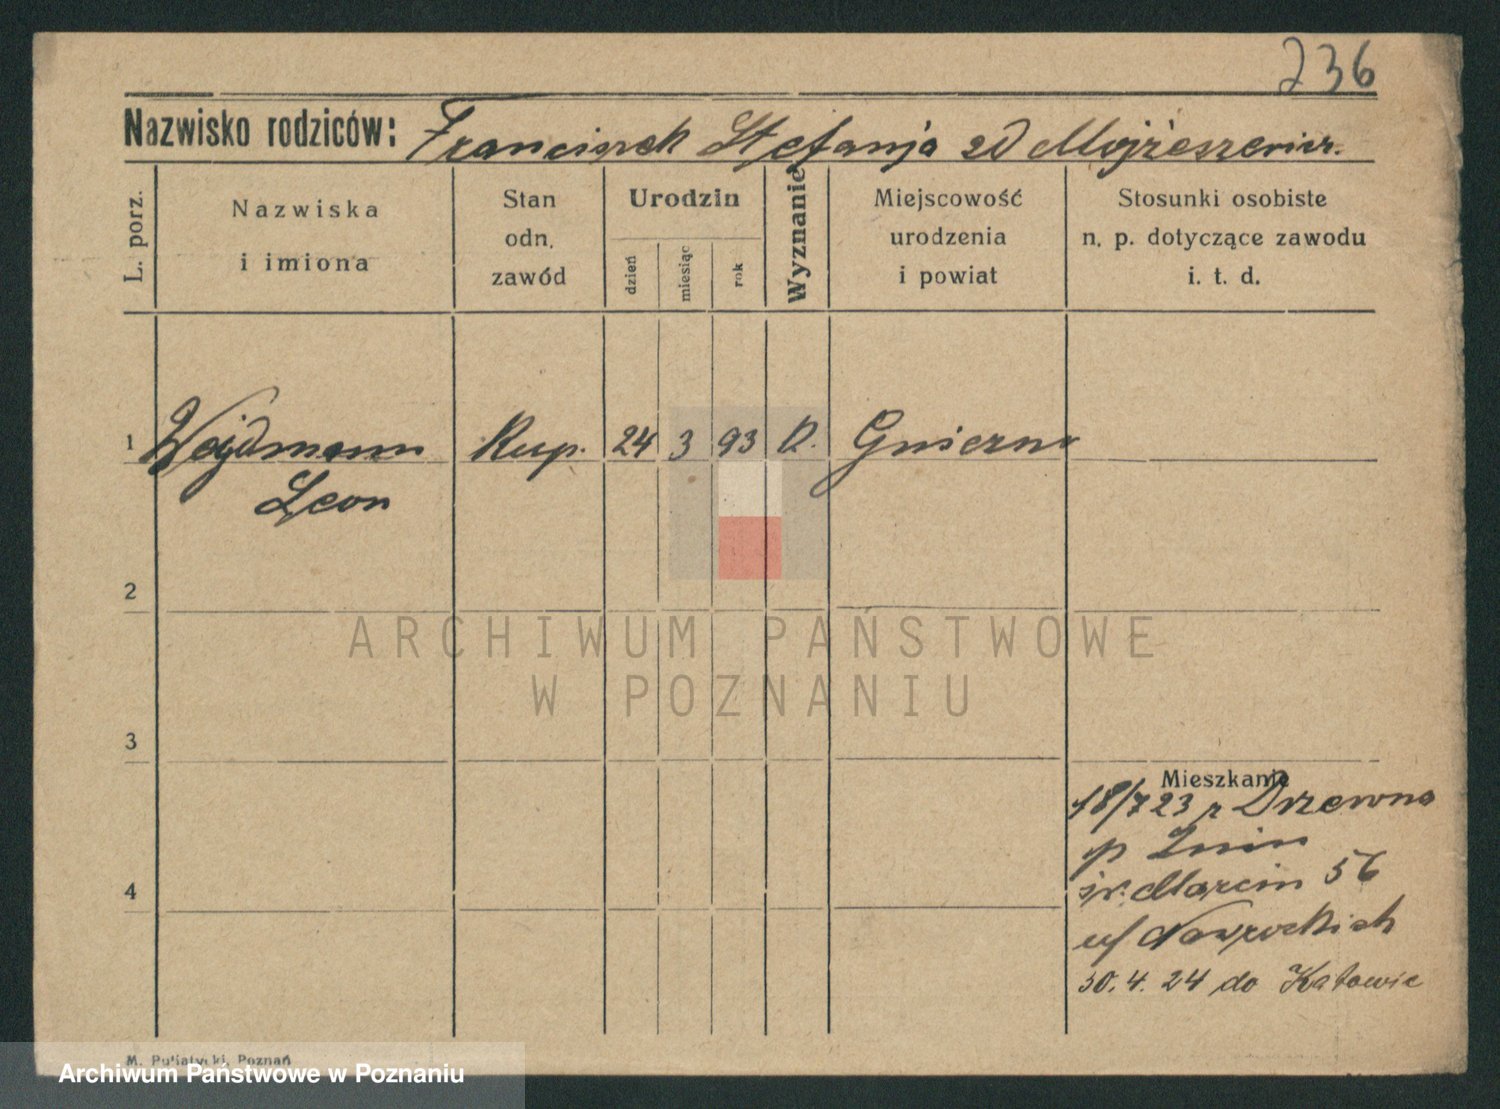 236
Nazwisko rodziców: Franciszek Stefanja zd Mojżeszewicz.
L. porz.
Nazwiska
i imiona
Stan
odn.
zawód
Urodzin
dzień
miesiąc
rok
Wyznanie
Miejscowość
urodzenia
i powiat
Stosunki osobiste
n. p. dotyczące zawodu
i. t. d.
1 Wejdmann Kup. 24 3 93 K. Gniezno
Leon
2
ARCHIWUM PAŃSTWOWE
W POZNANIU
3
Mieszkanie
18/7 23 z Drzewna
p Żnin
św. Marcin 56
u/ Nawrockich
4
30. 4. 24 do Katowic
M. Putiatycki, Poznań
Archiwum Państwowe w Poznaniu